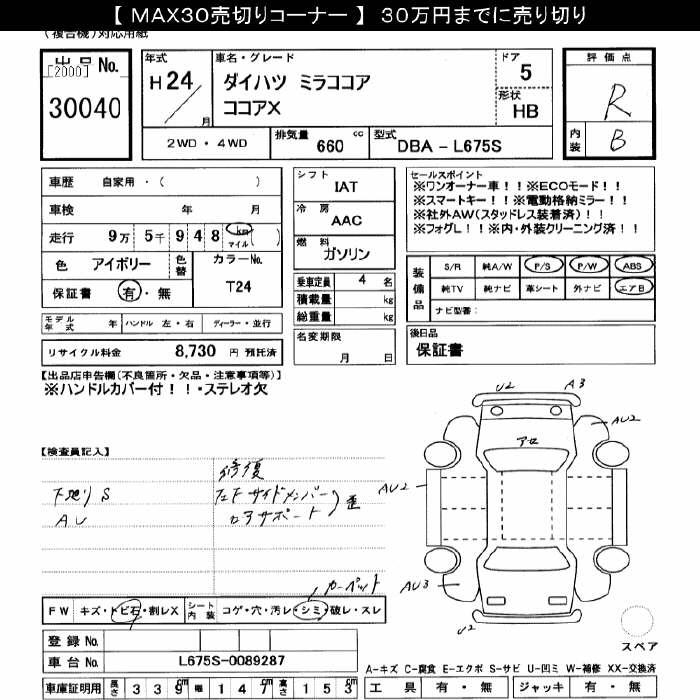 【 MAX30売切りコーナー 】 30万円までに売り切り
(複合機)対応用紙
出品 No.
[2000]
30040
年式
H 24
月
車名・グレード
ダイハツ ミラココア
ココアX
ドア
5
形状
HB
2WD・4WD
排気量 660 cc
型式 DBA - L675S
評価点
R
内装 B
車歴 自家用・( )
車検 年 月
走行 9万 5千 9 4 8 km マイル ( )
色 アイボリー 色替
カラーNo.
T24
保証書 有・無
モデル年式 年 ハンドル 左・右 ディーラー・並行
リサイクル料金 8,730 円 預託済
シフト
IAT
冷房
AAC
燃料
ガソリン
乗車定員 4 名
積載量 kg
総重量 kg
名変期限
月 日
セールスポイント
※ワンオーナー車!!※ECOモード!!
※スマートキー!!※電動格納ミラー!!
※社外AW(スタッドレス装着済)!!
※フォグL!!※内・外装クリーニング済!!
装備品
S/R 純A/W P/S P/W ABS
純TV 純ナビ 革シート 外ナビ エアB
ナビ型番:
後日品
保証書
【出品店申告欄(不良箇所・欠品・注意事項等)】
※ハンドルカバー付!!・ステレオ欠
【検査員記入】
修復
下廻り S
左下サイドメンバー
AU
コアサポート
歪
カーペット
U2
A3
AU2
アセ
AU2
AU3
U2
FW キズ・トビ石・割レX
シート内装 コゲ・穴・汚レ・シミ・破レ・スレ
登録 No.
車台 No. L675S-0089287
車庫証明用 長さ 3 3 9 cm 幅 1 4 7 cm 高さ 1 5 3 cm
スペア
A-キズ C-腐食 E-エクボ S-サビ U-凹ミ W-補修 XX-交換済
工具 有・無 ジャッキ 有・無